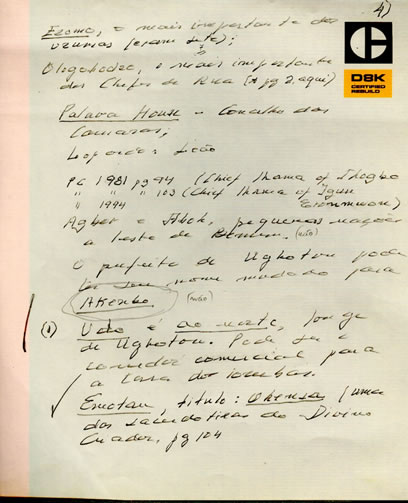 4)
Ezomo, o mais importante dos
uzamas (eram sete);
Ologbosere, o mais importante
dos Chefes de Rua (pg 2. aqui)
D8K
CERTIFIED
REBUILD
Palava House = Conselho das
Leopardo: Leão
PC 1981 pg 94 (Chief Ihama of Ihogbe
" " " 103 (Chief Ihama of Igun
" 1994 Eronmwon)
Agbor e Aboh, pequenas nações
a leste de Benin. (não)
O prefeito de Ughoton pode
ter seu nome mudado para
(não)
(1) Udo é ao norte, longe
de Ughoton. Pode ser o
corredor comercial para
a terra dos iorubas.
Emotan, título: Ohensa (uma
das sacerdotisas do Divino
Criador, pg 104